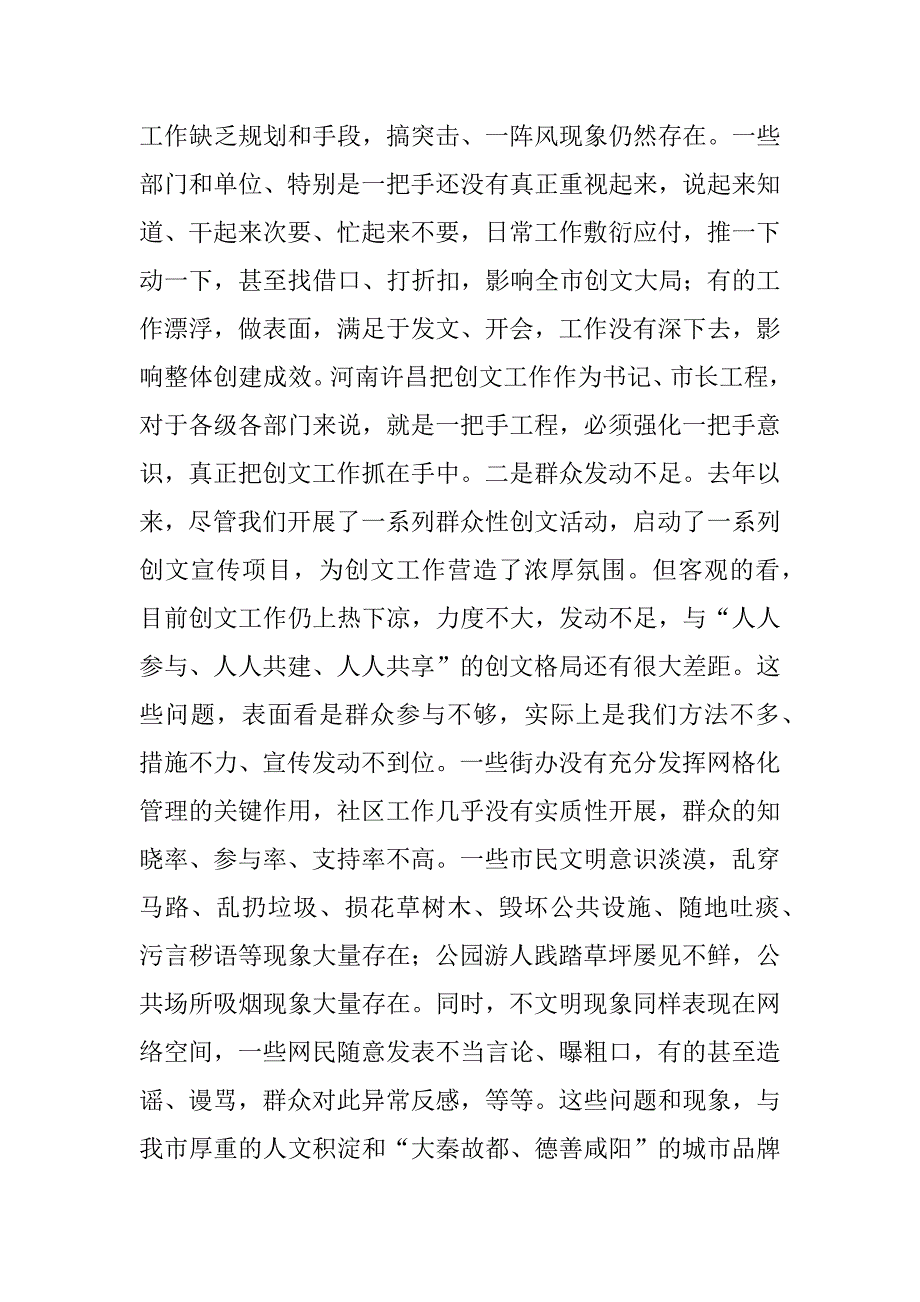 工作缺乏规划和手段，搞突击、一阵风现象仍然存在。一些
部门和单位、特别是一把手还没有真正重视起来，说起来知
道、干起来次要、忙起来不要，日常工作敷衍应付，推一下
动一下，甚至找借口、打折扣，影响全市创文大局；有的工
作漂浮，做表面，满足于发文、开会，工作没有深下去，影
响整体创建成效。河南许昌把创文工作作为书记、市长工程，
对于各级各部门来说，就是一把手工程，必须强化一把手意
识，真正把创文工作抓在手中。二是群众发动不足。去年以
来，尽管我们开展了一系列群众性创文活动，启动了一系列
创文宣传项目，为创文工作营造了浓厚氛围。但客观的看，
目前创文工作仍上热下凉，力度不大，发动不足，与“人人
参与、人人共建、人人共享”的创文格局还有很大差距。这
些问题，表面看是群众参与不够，实际上是我们方法不多、
措施不力、宣传发动不到位。一些街办没有充分发挥网格化
管理的关键作用，社区工作几乎没有实质性开展，群众的知
晓率、参与率、支持率不高。一些市民文明意识淡漠，乱穿
马路、乱扔垃圾、损花草树木、毁坏公共设施、随地吐痰、
污言秽语等现象大量存在；公园游人践踏草坪屡见不鲜，公
共场所吸烟现象大量存在。同时，不文明现象同样表现在网
络空间，一些网民随意发表不当言论、曝粗口，有的甚至造
谣、谩骂，群众对此异常反感，等等。这些问题和现象，与
我市厚重的人文积淀和“大秦故都、德善咸阳”的城市品牌